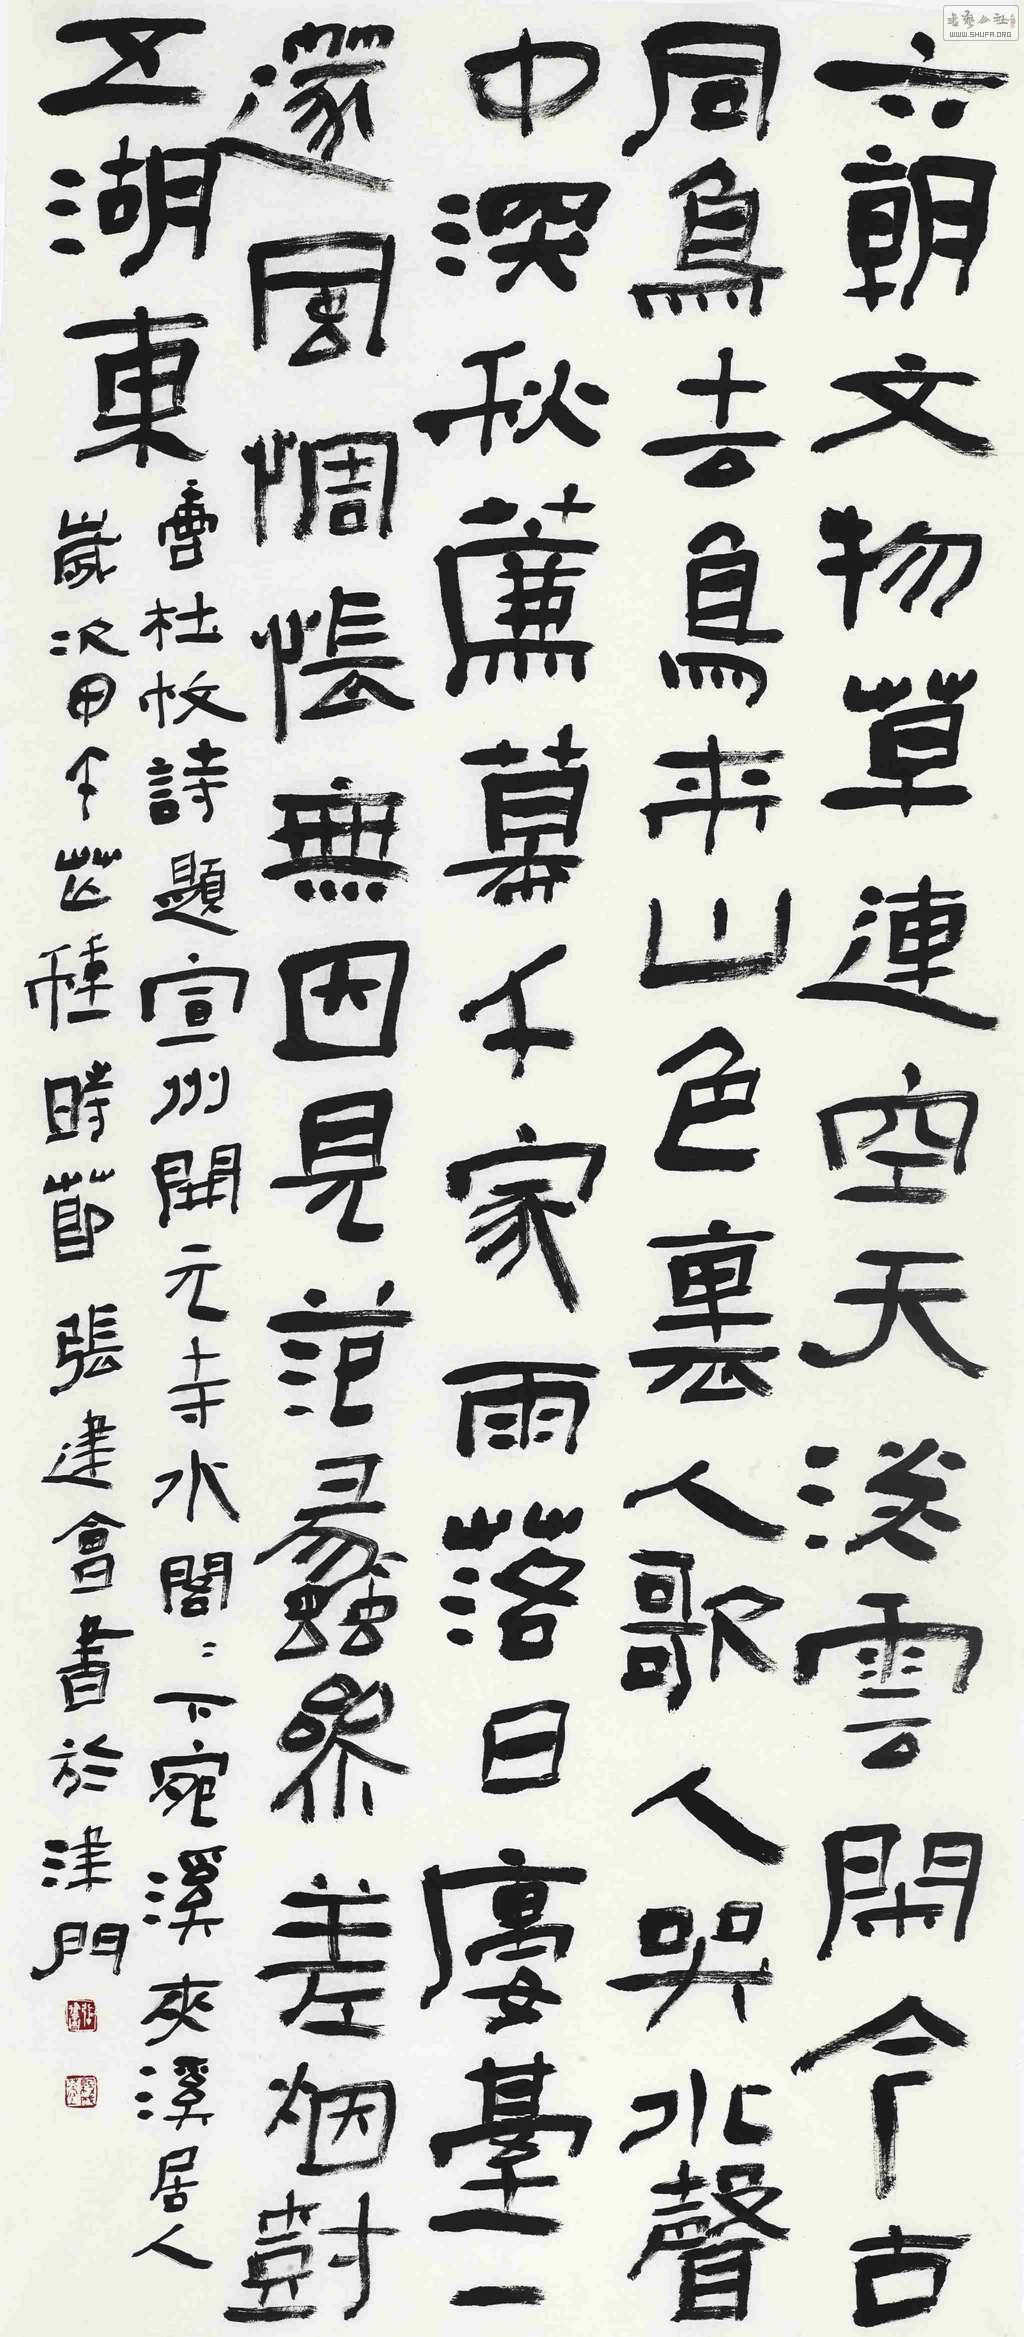 六朝文物草連空天淡雲閑今古
同鳥去鳥來山色裏人歌人哭水聲
中深秋薕幕千家雨落日廔臺一
蓫風惆悵無因見范蠡參差烟尌
五湖東
書杜牧詩題宣州開元寺水閣〻下宛溪夾溪居人
歲次甲午芒種時節張建會書於津門
WWW.SHUFA.ORG